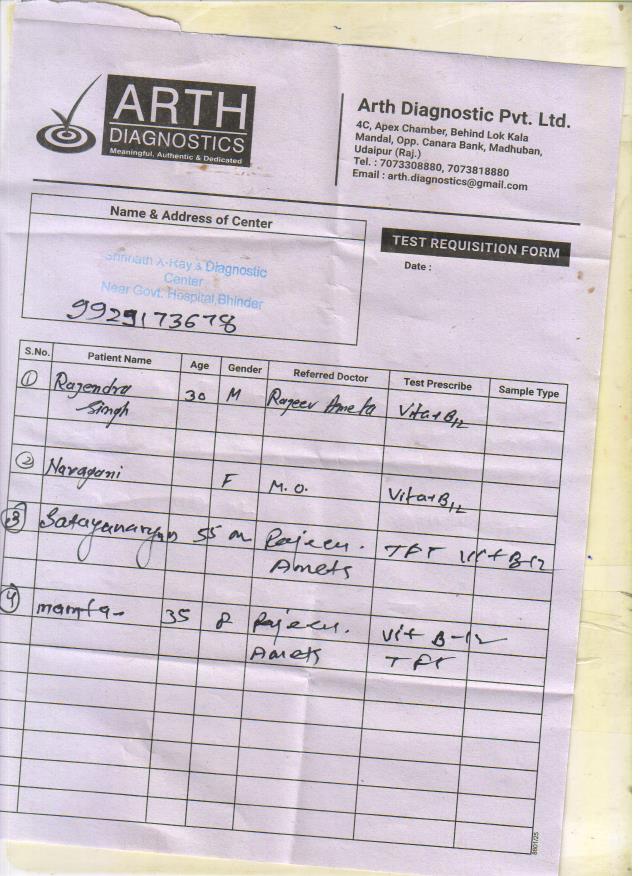 ARTH
DIAGNOSTICS
Meaningful, Authentic & Dedicated
Arth Diagnostic Pvt. Ltd.
4C, Apex Chamber, Behind Lok Kala
Mandal, Opp. Canara Bank, Madhuban,
Udaipur (Raj.)
Tel. : 7073308880, 7073818880
Email : arth.diagnostics@gmail.com
Name & Address of Center
Shrinath X-Ray & Diagnostic
Center
Near Govt. Hospital, Bhinder
9929173678
TEST REQUISITION FORM
Date :
S.No. Patient Name Age Gender Referred Doctor Test Prescribe Sample Type
1 Rajendra 30 M Rajeev Ameta Vita+B12
Singh
2 F M.O. Vita+B12
3 Satayanaryan 55 m Rajeev. TFT Vit B-12
4 mamta 35 Rajeev. Vit B-12
TFT
8601/25